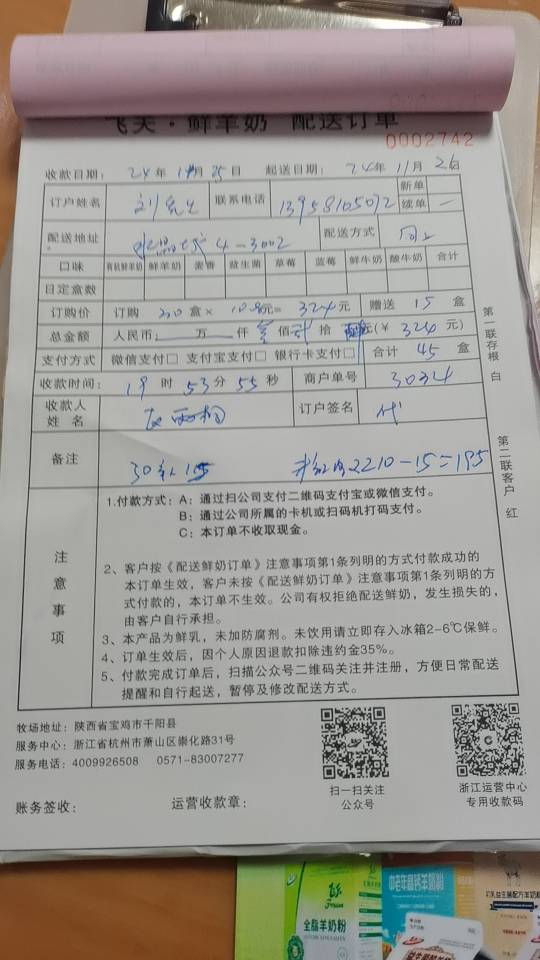 飞天·鲜羊奶 配送订单
0002742
收款日期: 24年 11月25日 起送日期: 24年11月26日
订户姓名 刘先生 联系电话 13958105072 新单
续单 一
配送地址 水晶城 4-3002 配送方式 同上
口味 有机鲜羊奶 鲜羊奶 麦香 益生菌 草莓 蓝莓 鲜牛奶 酸牛奶 合计
日定盒数
订购价 订购 盒× 10.8元= 324元 赠送 15 盒
总金额 人民币: 万 仟 叁佰 贰拾 元(¥ 324 元)
支付方式 微信支付□ 支付宝支付□ 银行卡支付□ 合计 45 盒
收款时间: 19时 53分 55秒 商户单号 3034
收款人姓名 订户签名 代
备注 30 15 2210-15=195
第一联存根 白
第二联客户 红
注意事项
1.付款方式: A: 通过扫公司支付二维码支付宝或微信支付。
B: 通过公司所属的卡机或扫码机打码支付。
C: 本订单不收取现金。
2、客户按《配送鲜奶订单》注意事项第1条列明的方式付款成功的
本订单生效,客户未按《配送鲜奶订单》注意事项第1条列明的方
式付款的,本订单不生效。公司有权拒绝配送鲜奶,发生损失的,
由客户自行承担。
3、本产品为鲜乳,未加防腐剂。未饮用请立即存入冰箱2-6℃保鲜。
4、订单生效后,因个人原因退款扣除违约金35%。
5、付款完成订单后,扫描公众号二维码关注并注册,方便日常配送
提醒和自行起送,暂停及修改配送方式。
牧场地址: 陕西省宝鸡市千阳县
服务中心: 浙江省杭州市萧山区崇化路31号
服务电话: 4009926508 0571-83007277
扫一扫关注
公众号
浙江运营中心
专用收款码
账务签收: 运营收款章:
全脂羊奶粉
中老年高钙羊奶粉